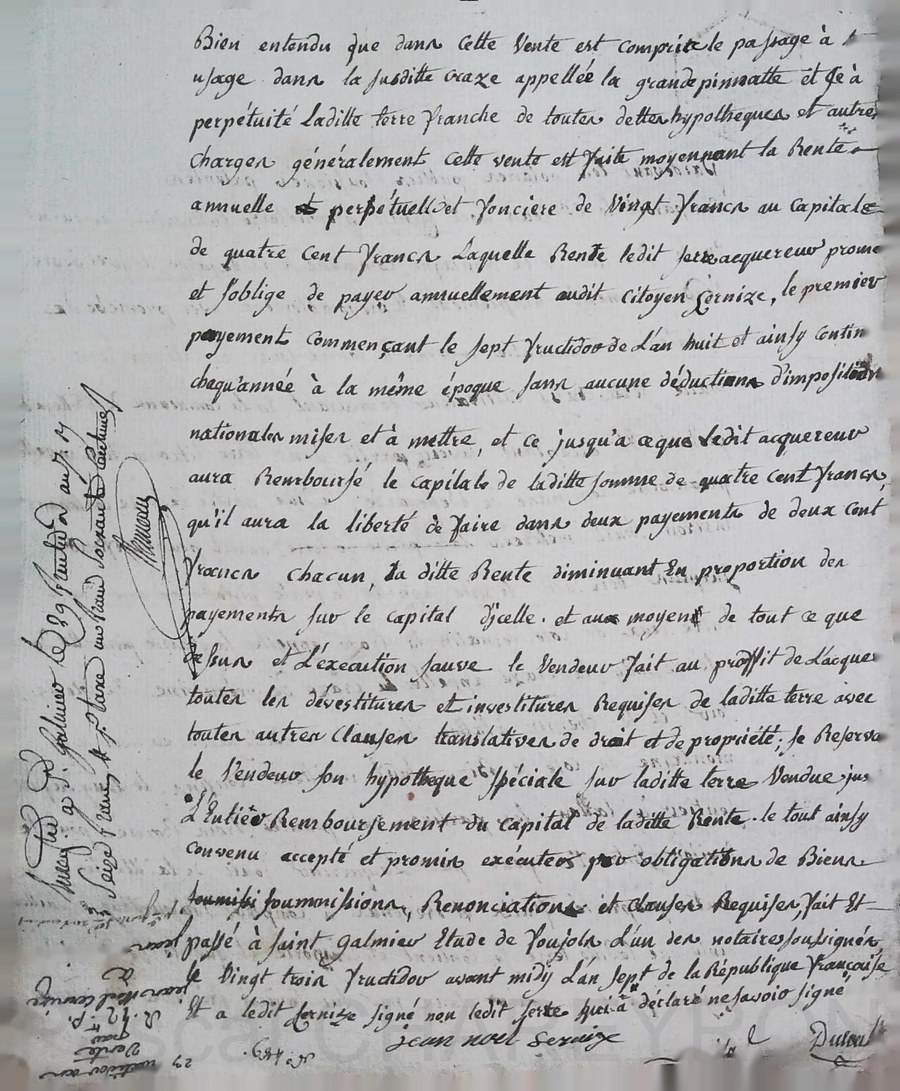 Bien entendu que dans cette vente est comprise le passage à
usage dans la susditte craze appellée la grande pinnatte et ce à
perpétuité laditte terre franche de toutes dettes hypotheques et autres
charges généralement cette vente est faite moyennant la Rente
annuelle et perpétuelle et fonciere de vingt francs au capital
de quatre cent francs Laquelle Rente ledit serre acquereur prome
et s'oblige de payer annuellement audit citoyen Sernize, le premier
payement commençant le sept fructidor de L'an huit et ainsy contin
chaqu'année à la même époque sans aucune déductions d'impositions
nationales mises et à mettre, et ce jusqu'a ceque Ledit acquereur
aura Remboursé le capital de laditte somme de quatre cent francs
qu'il aura la liberté de faire dans deux payements de deux cent
francs chacun, La ditte Rente diminuant En proportion des
payements sur le capital d'icelle. et au moyent de tout ce que
dessus et L'execution sauve le vendeur fait au proffit de L'acque
toutes les dévestitures et investitures Requises de laditte terre avec
toutes autres clauses translatives de droit et de propriété; se Reserve
le vendeur son hypotheque spéciale sur laditte terre vendue jus
L'Entier Remboursement du capital de laditte Rente. le tout ainsy
convenu accepté et promis exécuter par obligations de Biens
soumissions, Renonciations et clauses Requises, fait Et
passé à saint galmier Etude de Poujols L'un des notaires soussignés
le vingt trois fructidor avant midy L'an sept de la République française
Et a ledit Sernize signé non ledit serre qui a déclaré ne savoir signé
jean noel Sernize
galmier le 29 fructidor an 7
Seize francs